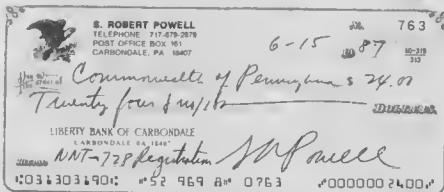 S. ROBERT POWELL 763
TELEPHONE 717-679-2879
POST OFFICE BOX 161
CARBONDALE, PA 18407
6-15 1987 60-319
313
Pay to the order of Commonwealth of Pennsylvania $ 24.00
Twenty four & no/100 DOLLARS
LIBERTY BANK OF CARBONDALE
CARBONDALE PA 18407
NNT-728 Registration S R Powell
⑆031303190⑆ ⑈52 969 8⑈ 0763 ⑈0000002400⑈